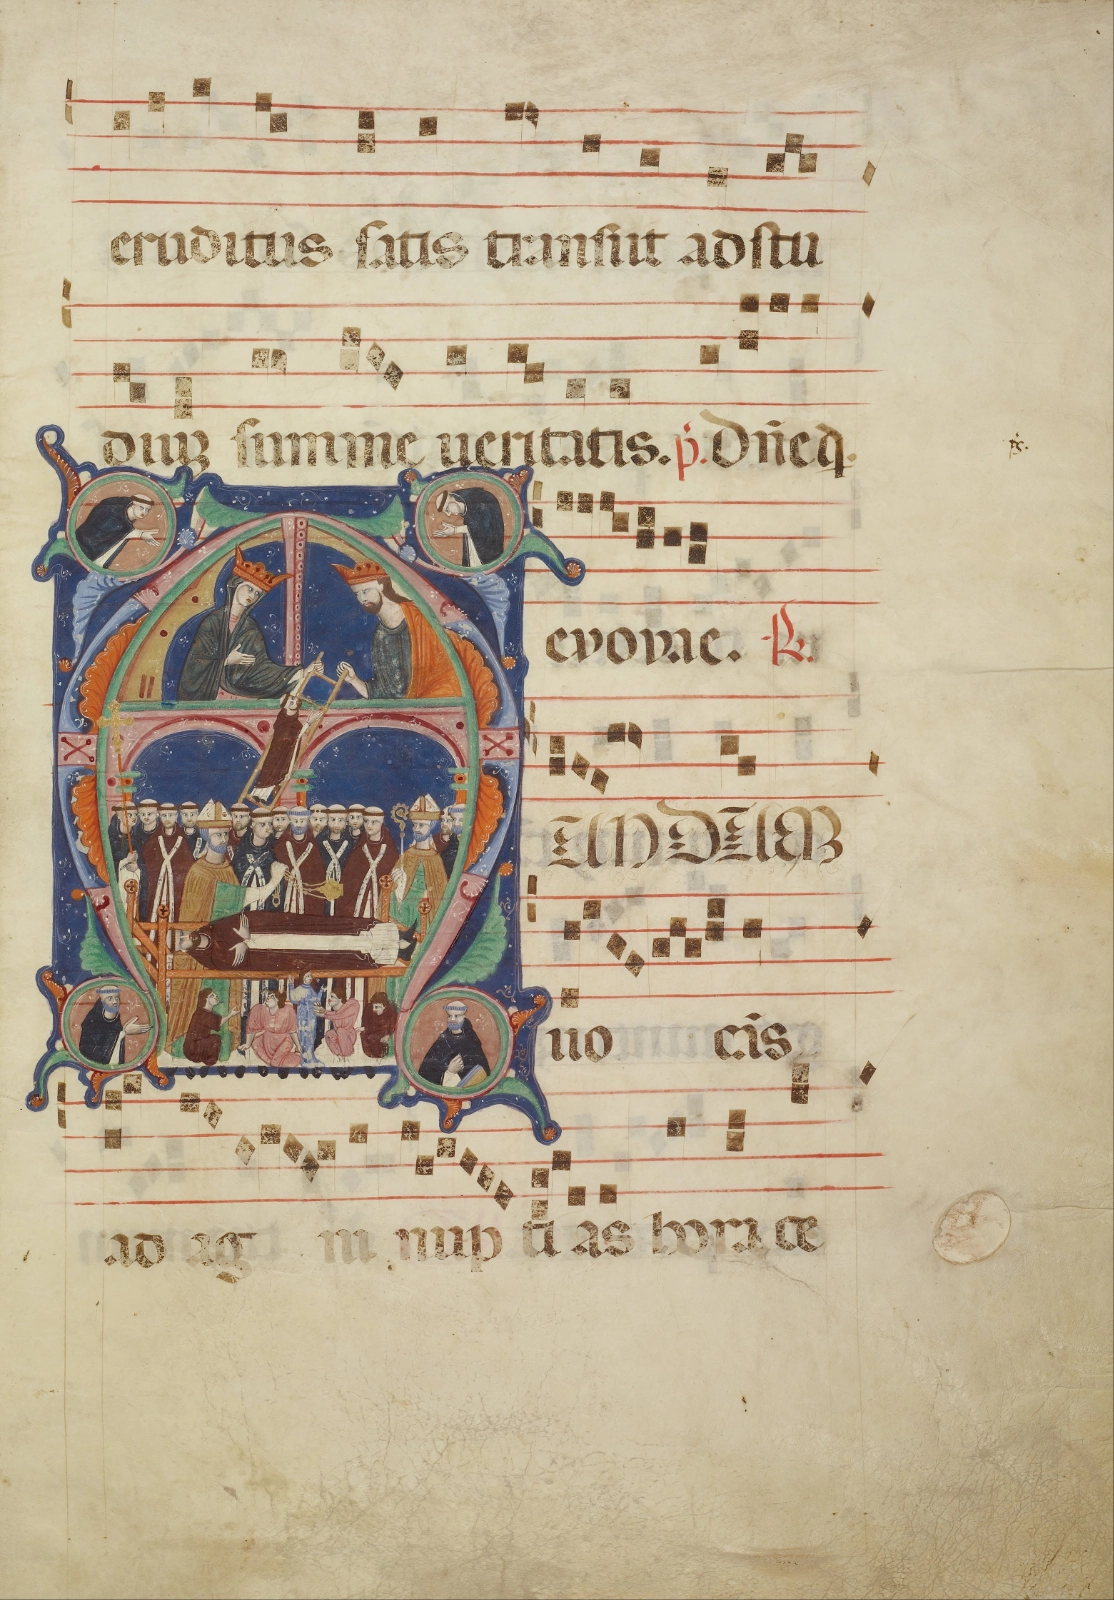 eruditus satis transiit ad stu
dium summe ueritatis. p. Dñe q.
p̃.
evovae. R.
TENDEBAM
no cis
ad ag ni nup ti as hora ce